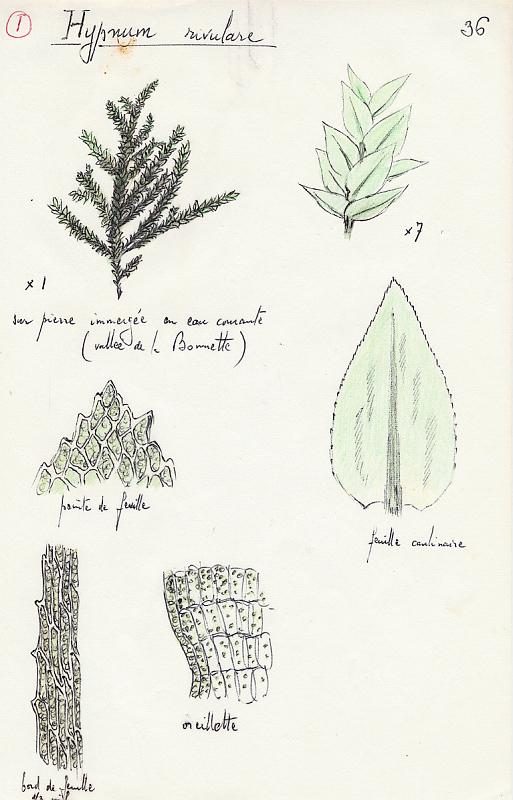 1
Hypnum rivulare
36
x 1
x 7
sur pierre immergée en eau courante
(vallée de la Bonnette)
pointe de feuille
feuille caulinaire
oreillette
bord de feuille